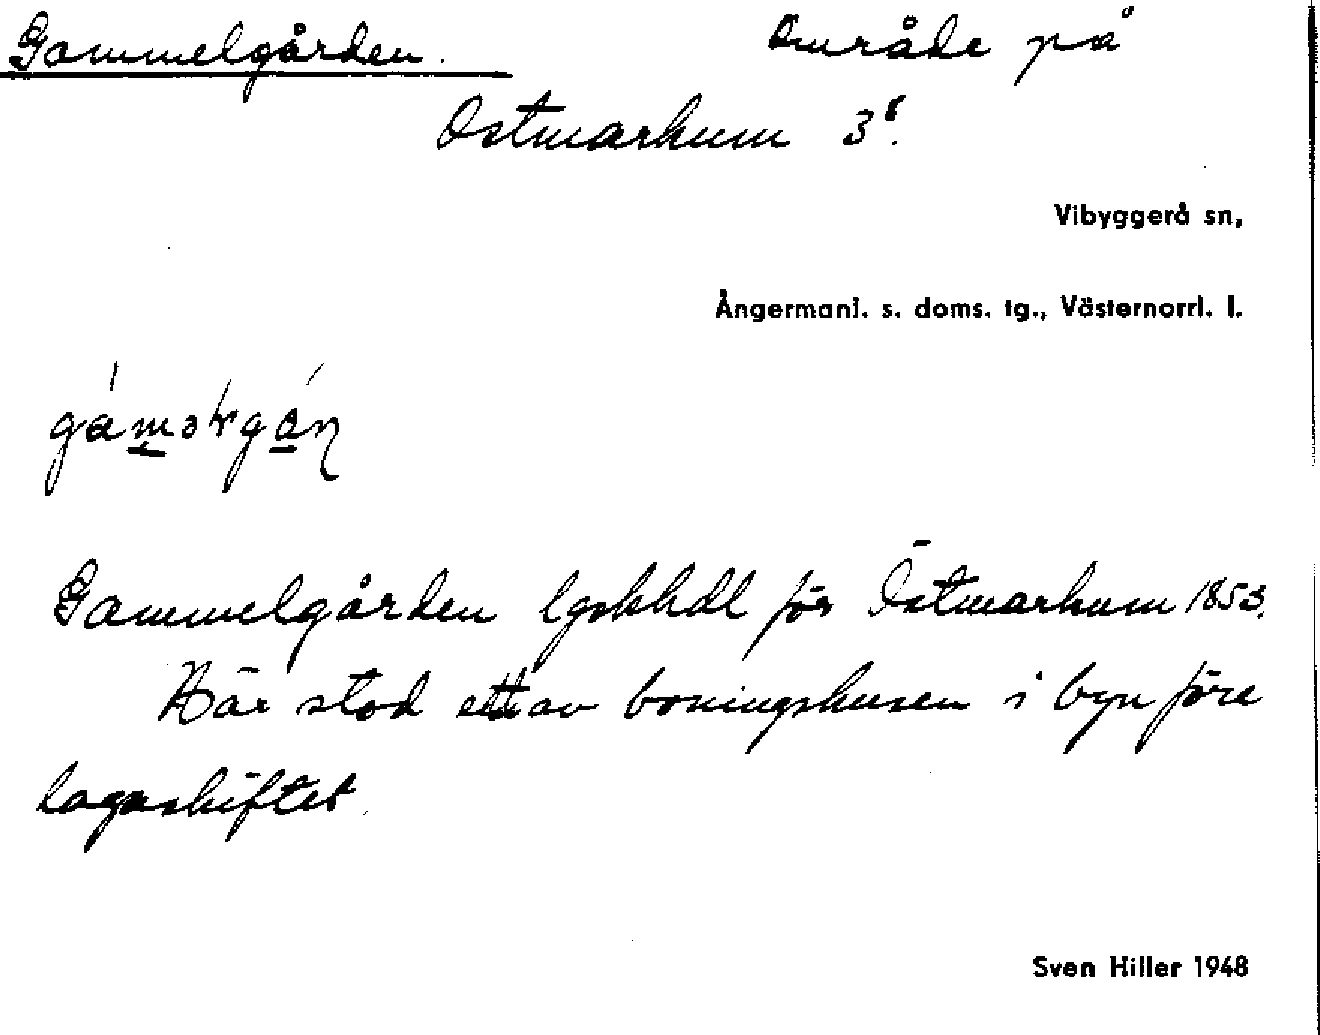 Gammelgården. Område på
Östmarkum 3⁸.
Vibyggerå sn,
Ångermanl. s. doms. tg., Västernorrl. l.
Gammelgården lgskhdl för Östmarkum 1853.
Här stod ett av boningshusen i byn före
lagaskiftet.
Sven Hiller 1948